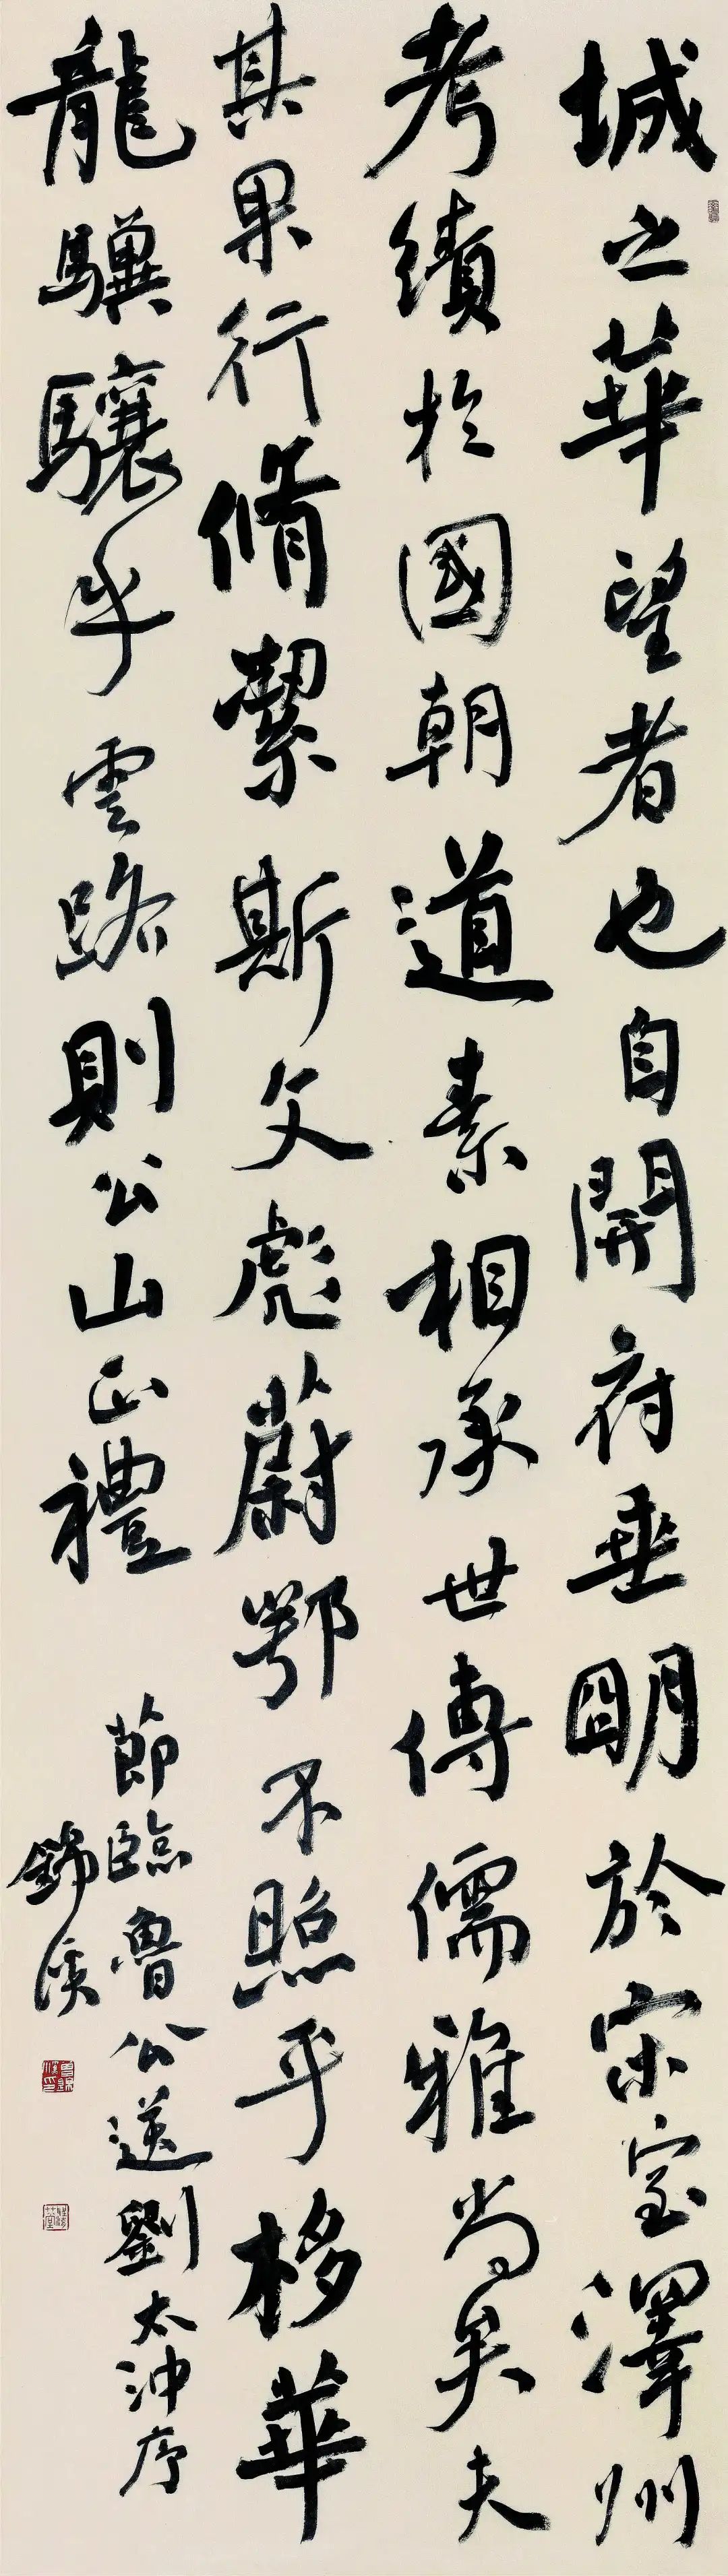 城之華望者也自開府垂明於宋室澤州
考績於國朝道素相承世傳儒雅尚矣夫
其果行脩絜斯文彪蔚鄂不照乎栘華
龍驥驤乎雲路則公山正禮
節臨魯公送劉太沖序
錦溪